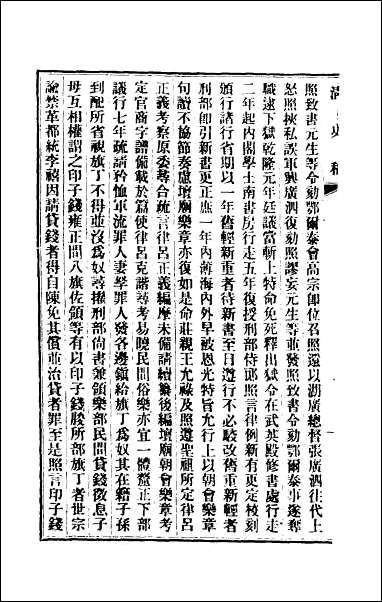 清史稿
照致書元生等令劾鄂爾泰會高宗卽位召照還以湖廣總督張廣泗往代上
怒照挾私誤軍興廣泗復劾照謬妄元生等並發照致書令劾鄂爾泰事遂奪
職逮下獄乾隆元年廷議當斬上特命免死釋出獄令在武英殿修書處行走
二年起內閣學士南書房行走五年復授刑部侍郎照言律例新有更定校刻
頒行諸行省期以一年舊輕新重者待新書至日遵行不必駮改舊重新輕者
刑部卽引新書更正庶一年內薄海內外早被恩光特旨允行上以朝會樂章
句讀不協節奏慮壇廟樂章亦復如是命莊親王允祿及照遵聖祖所定律呂
正義考察原委尋合疏言律呂正義編摩未備請續纂後編壇廟朝會樂章考
定宮商字譜備載於篇使律呂克諧尋考易曉民間俗樂亦宜一體釐正下部
議行七年疏請矜恤軍流罪人妻孥罪人發各邊鎮給旗丁爲奴其在籍子孫
到配所省視旗丁不得並沒爲奴尋擢刑部尚書兼領樂部民間貸錢徵息子
母互相權謂之印子錢雍正間八旗佐領等有以印子錢朘所部旗丁者世宗
諭禁革都統李禧因請貸錢者得自陳免其償並治貸者罪至是照言印子錢